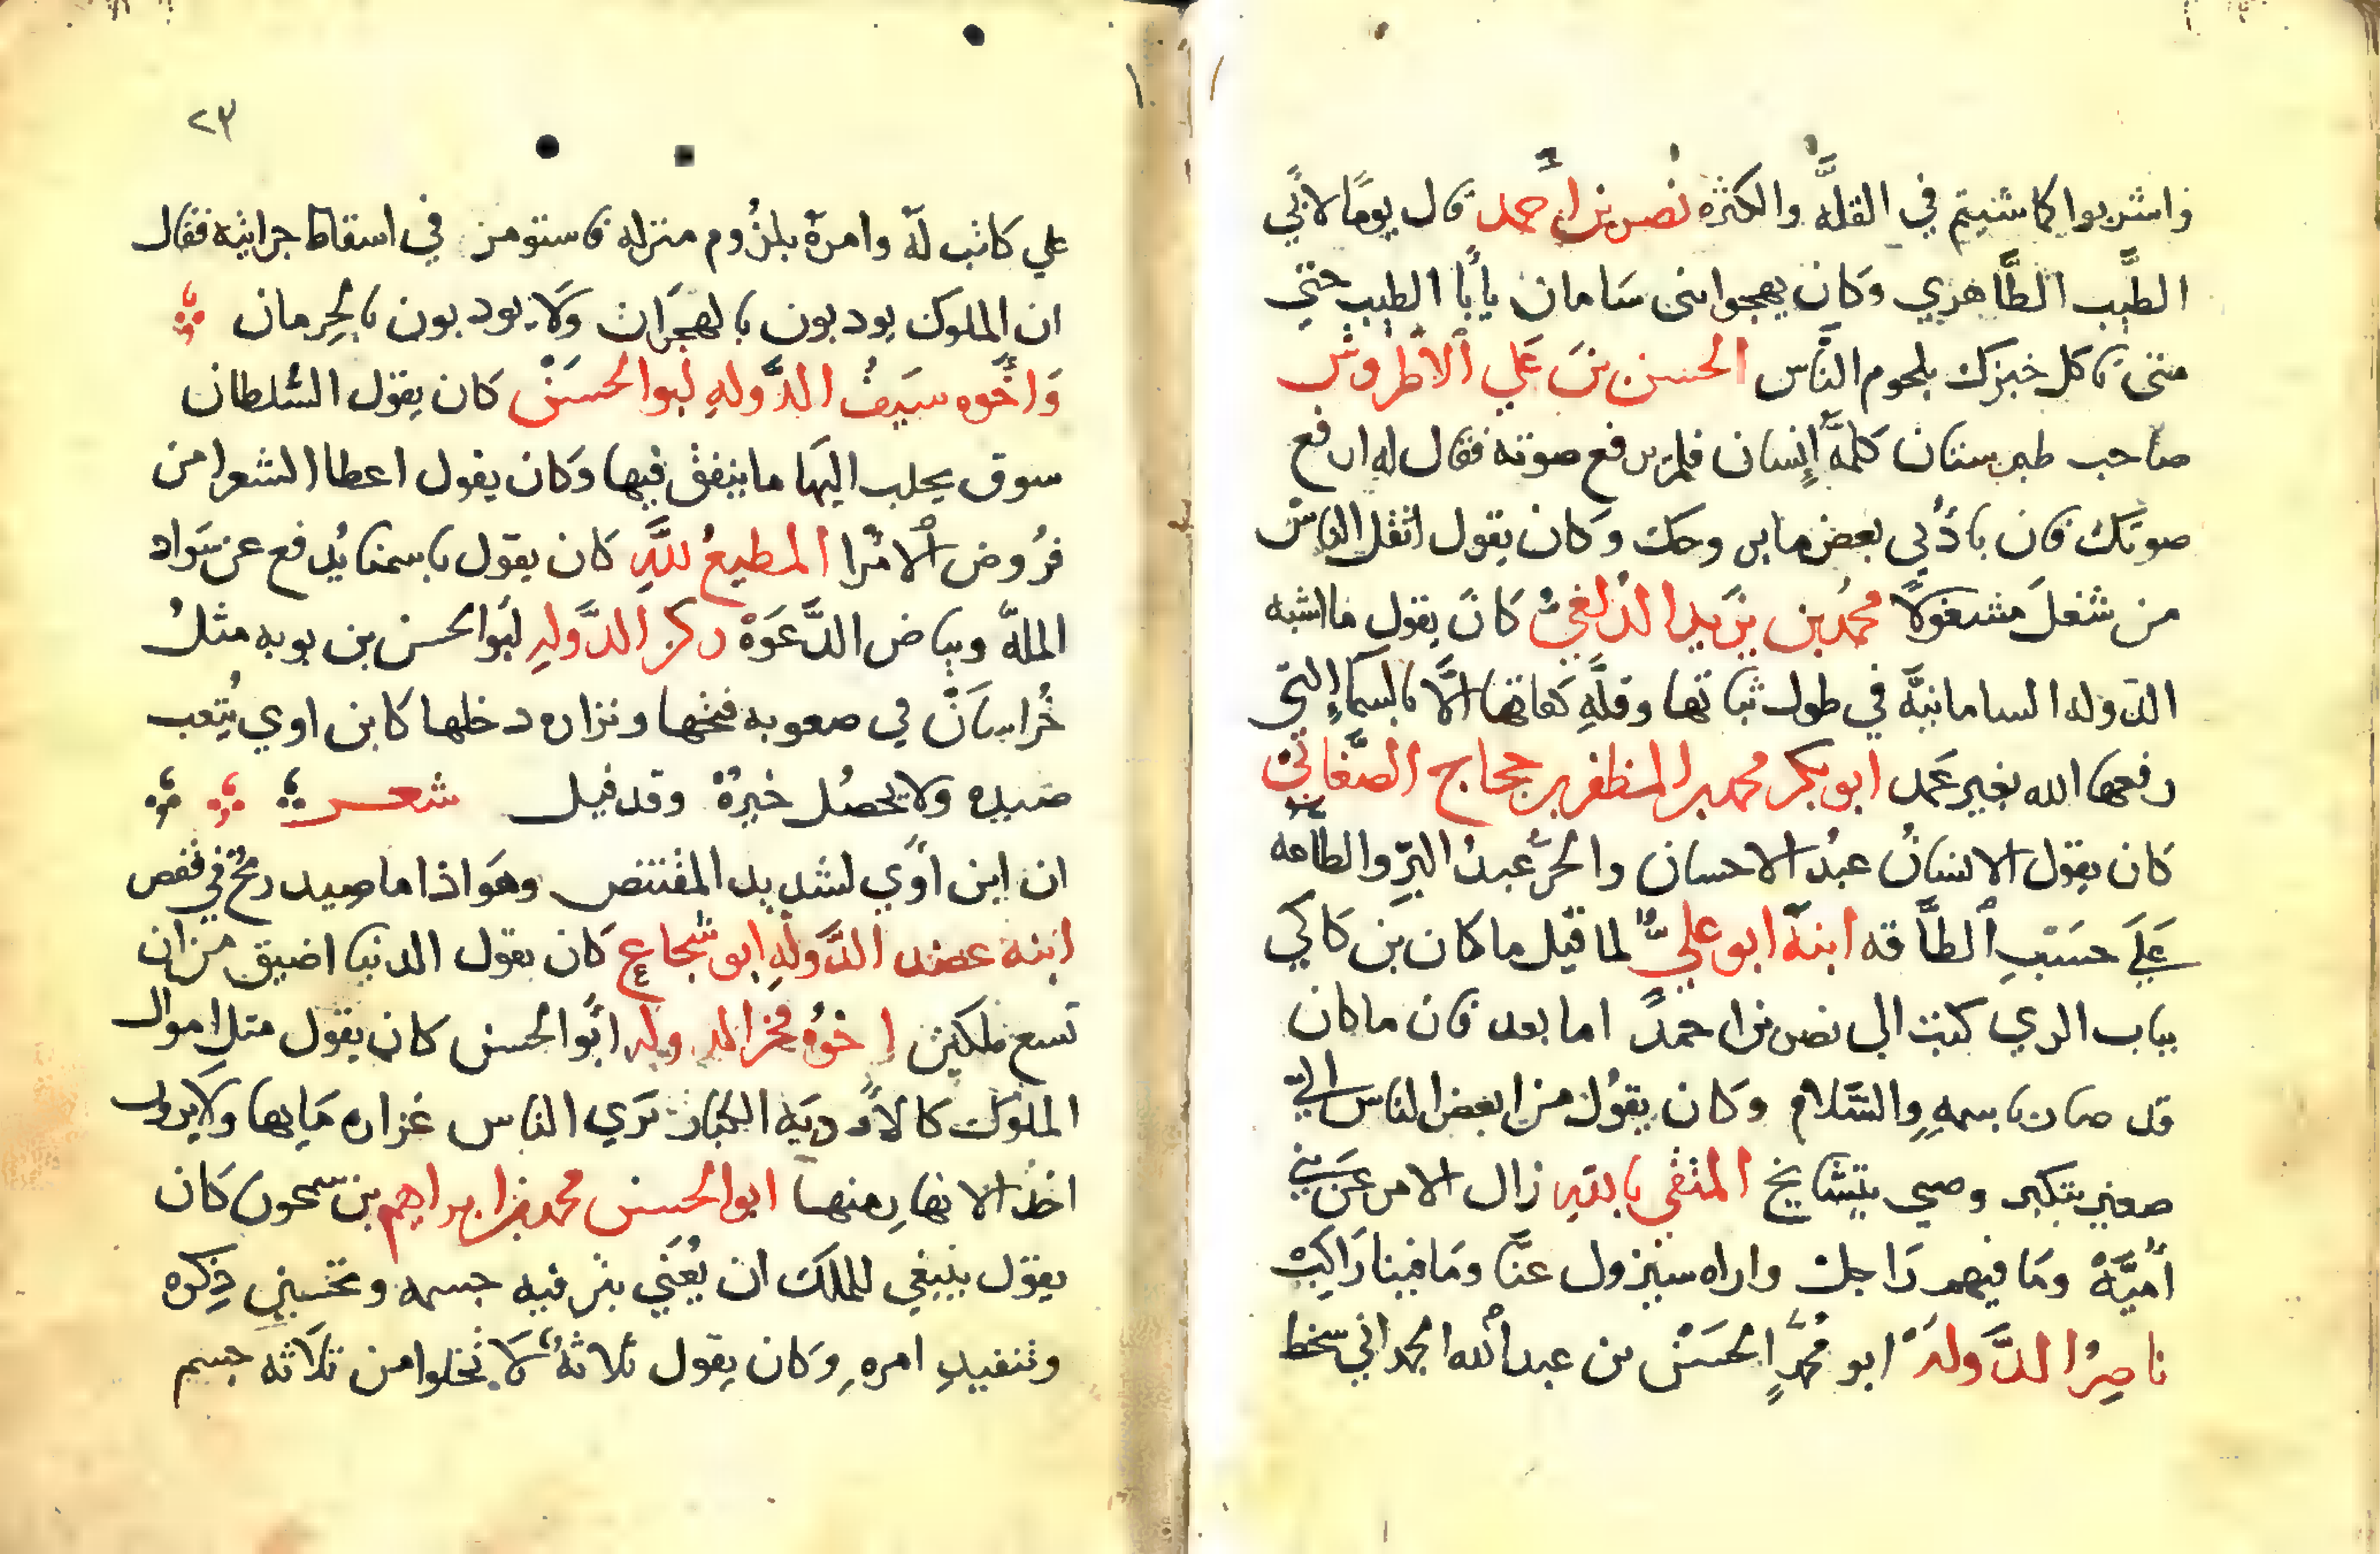 واشربوا كما شيتم في القلة والكثره نصر بن احمد قال يومًا لابي
الطَّيب الطَّاهري وكان يهجوا بنى سَامان يأبا الطيب حتي
متى تاكل خبزك بلحوم النَّاس الحسن بن عَلي الأطروش
صاحب طبرستان كلمهَ اِنسان فلم يرفع صوته فقال له ارفع
صوتك فان باذُني بعض ما بروحك وكان يقول اثقل الناس
من شغلَ مشغولًا محمُد بن يزيد كانَ يقول ما اشبه
الدوله السامانيَّه في طول ثباتها وقلَّهِ الَّا بالسماءِ التي
رفعها الله بغير عَمد ابو بكر محمد بن المظفر بن حجاج الصَّغاني
كان يقول الانسانُ عبدُ الاحسان والحرُّ عبدُ البرِّ والطاعه
عَلَي حسَبِ الطَّاقه ابنهُ ابو عليٍّ لما قتِل ما كان بن كاكي
بباب الري كتبَ الي نصر بن احمدَ اما بعد فان ما كان
قد صار باسمهِ والسَّلام وكان يقوُل من ابغض الناس اليَّ
صغير يتكبر وصبي يتشايخ المتقي بالله زال الامر عَن بني
اُميَّة ومَا فيهم رَاجل واراه سيزول عنَّا ومَا فينا رَاكبْ
ناصِرُ الدَّولهَ ابو مُحمَّدٍ الحسَنْ بن عبد الله الحمداني سخط
٢٣
علي كاتب لهَ وامرهَ بلزُوم منزله فاستومر في اسقاط جرايته فقال
ان الملوك يودبون بالهجَران وَلَا يودبون بالحِرمان
وَاخُوه سَيفُ الدَّولهِ ابو الحسَنْ كان يقول السُّلطان
سوق يجلب اليهَا ما ينفق فيها وكان يقول اعطا الشعرا من
فرُوض الأمرا المطيعُ للَّهِ كان يقول باسمنا يُدفع عن سَواد
الملهَّ وبياض الدَّعوَهْ ركن الدَّولهِ ابو الحسن بن بويه مثلُ
خُراسَانَ في صعوبه فتحها ونزاره دخلها كابن اوي يُتعِب
صَيده ولا يحصُل خيرهُ وقد قيل شعر
ان ابن اوَي لشديد المقتنص وهَو اذا ما صيد ريحُ في قفص
ابنه عضد الدَّولهِ ابو شجاعٍ كان يقول الدنيا اضيق من ان
تسع ملكين اخوُه فخر الدوله ابُو الحسن كان يقول مثل اموال
الملوُك كالاوديَه الكبار تَري الناس غزاره مَايها ولا يرون
اخْذ الانهار منها ابو الحسن محمد بن ابراهيم بن سمحون كَان
يقول ينبغي للملك ان يُعنَي بترفيه جسمه وتحسينِ ذِكره
وتنفيدِ امره وكان يقول ثلاثةُ لَا تخلوا من ثلَاثه جسم